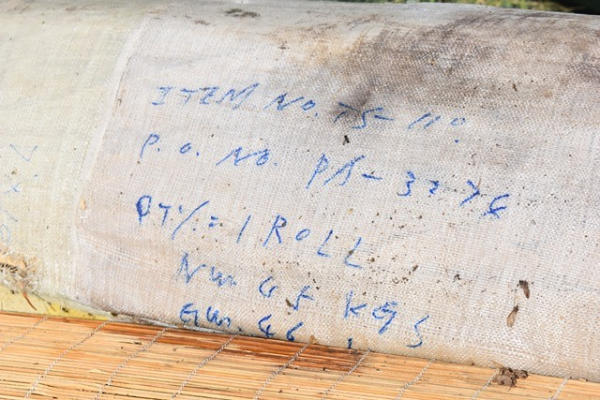 ITEM NO. TS-110
P.O. NO. PA-3376
QTY.=1 ROLL
NW. 45 KGS
GW. 46